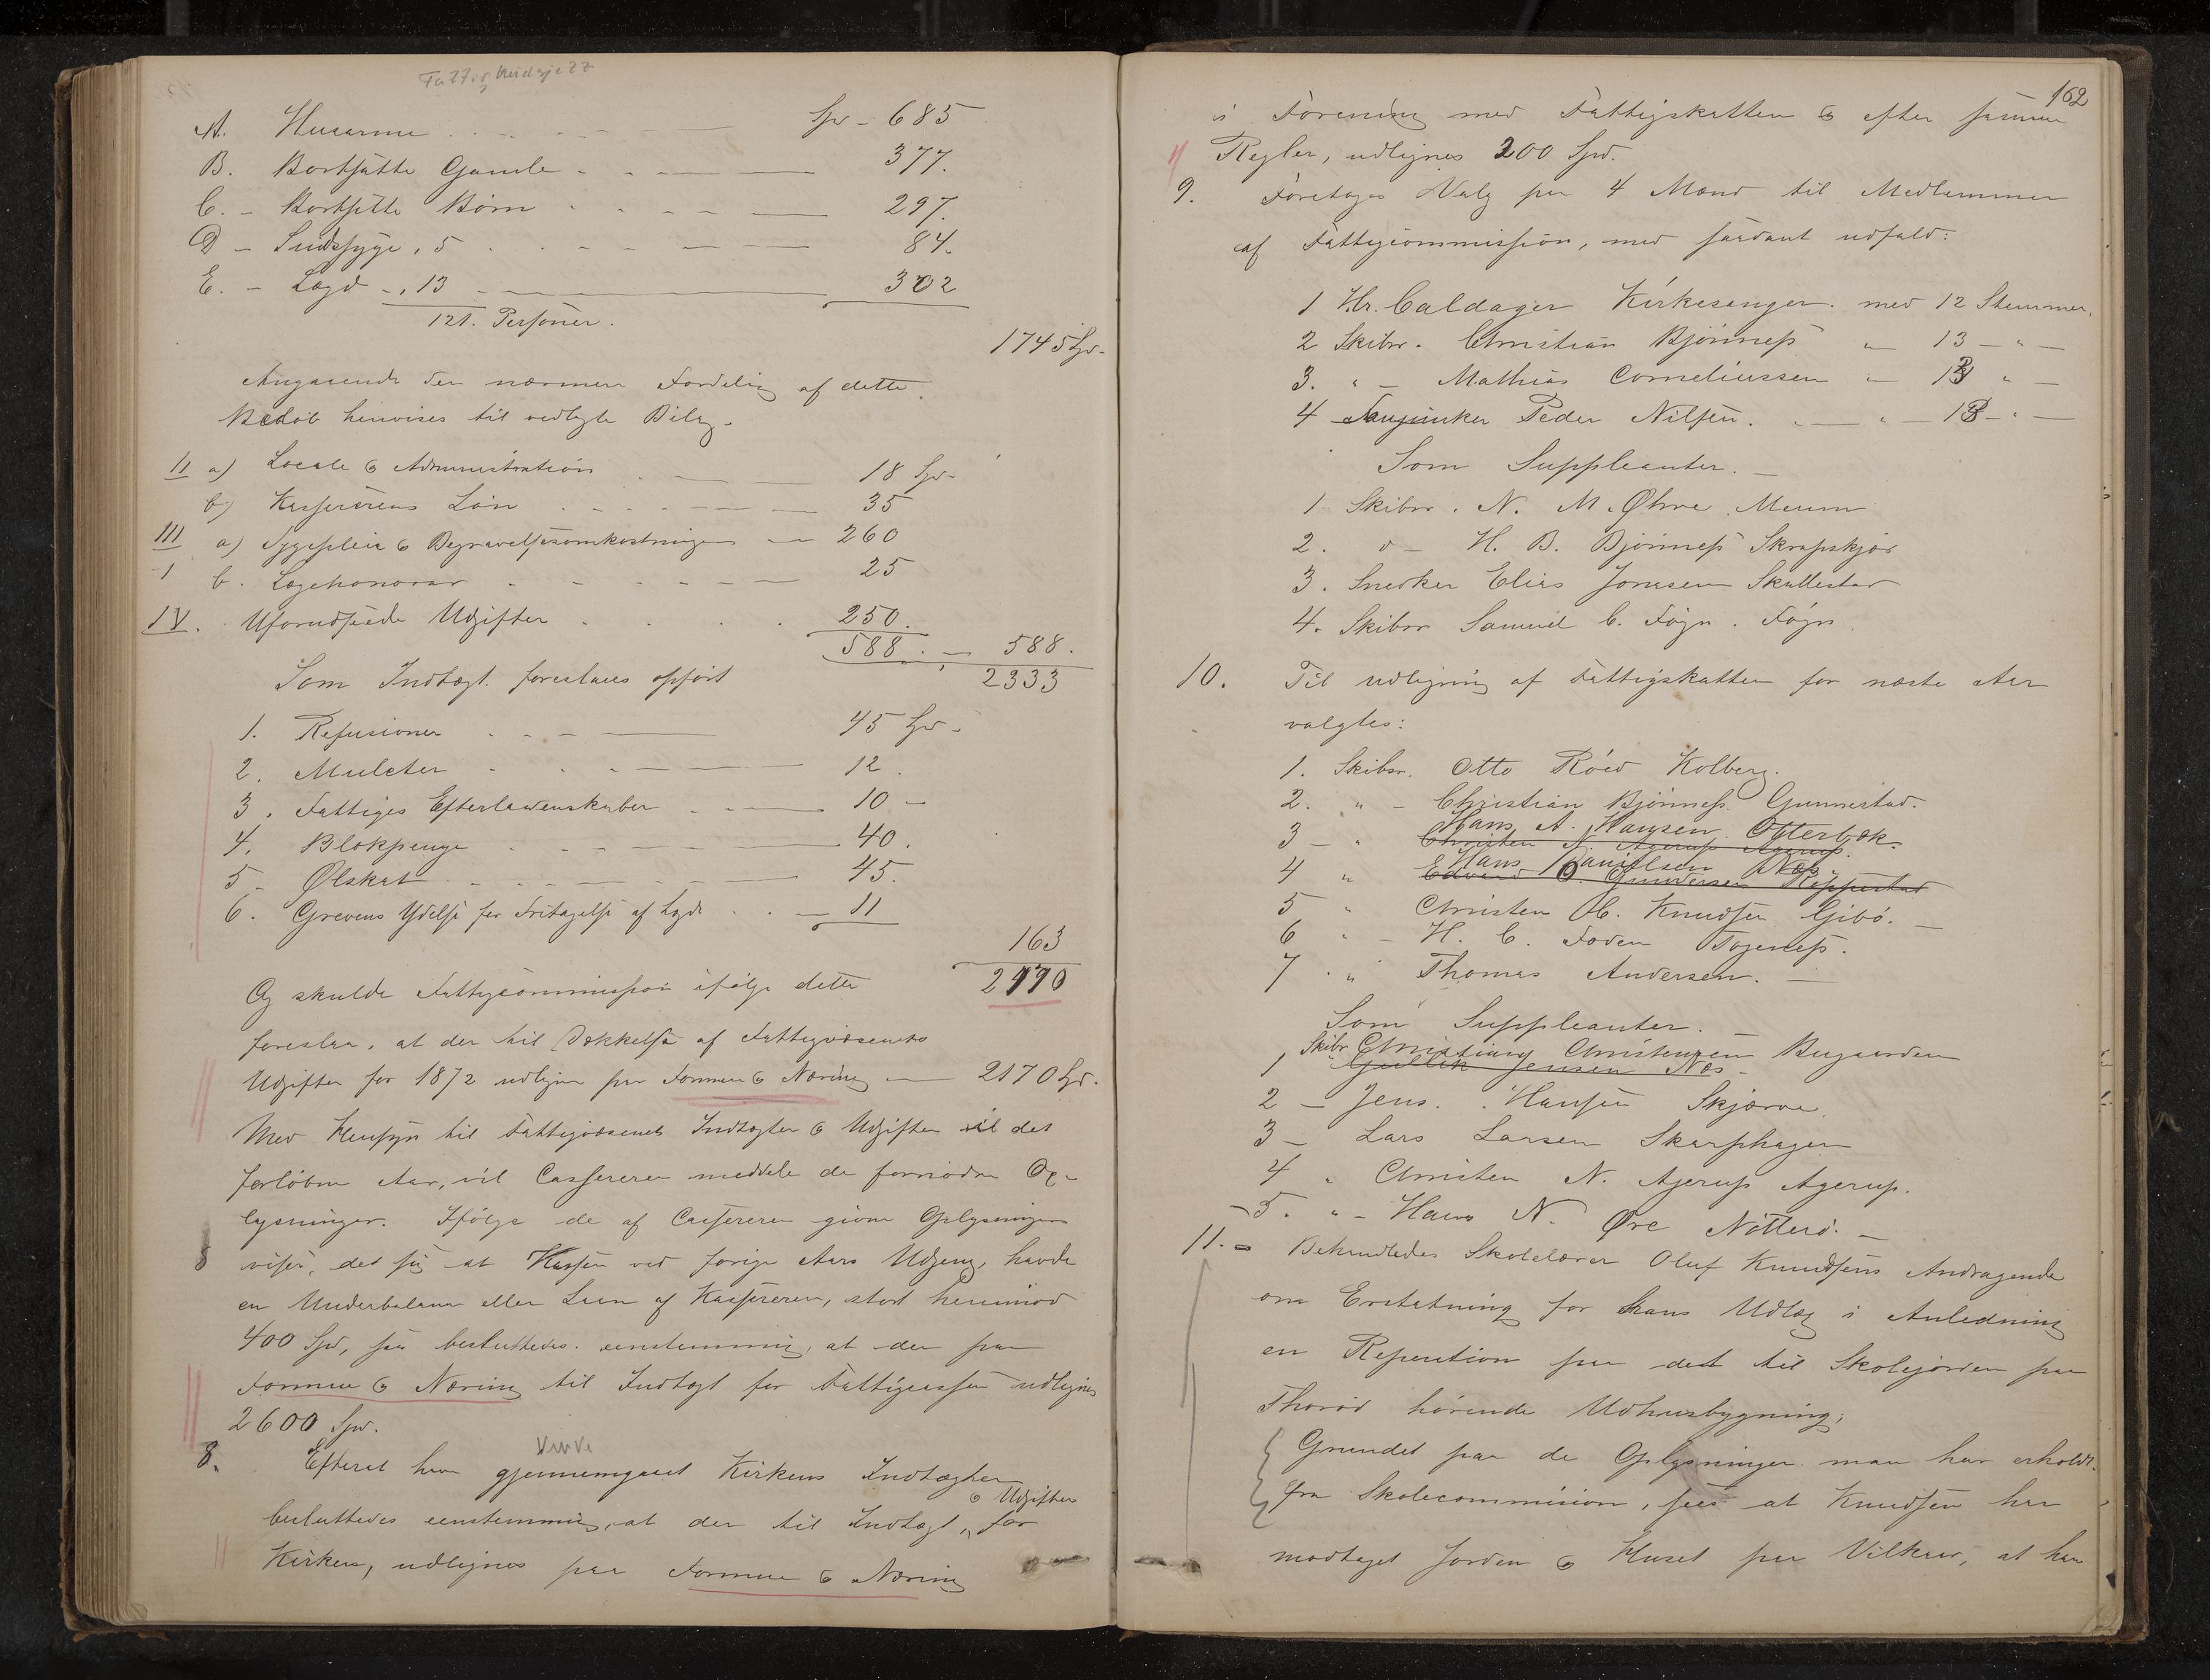 A. Husarme . . . . Spd - 685
B. Bortsatte Gamle - - - 377.
C. - Bortsatte Børn - - - 297.
D - Sindssyge, 5 . . - - - 84.
E. - Lægd - „ 13 - 302
121. Personer.
1745 Spd-
Angaaende den nærmere Fordeling af dette
Beløb henvises til vedlagte Bilag.
II a) Locale & Administration 18 Spd-
b) Kassererens Løn 35
III a) Sygepleie & Begravelsesomkostninger - 260
b. Lægehonorar - - - 25
IV. Uforudseede Udgifter . . . . 250.
588. - 588.
Som Indtægt foreslaaes opført 2333
1. Refusioner - - - 45 Spd-
2. Mulcter - - - 12.
3. Fattiges Efterladenskaber - - 10 -
4. Blokpenge - - - 40.
5 - Ølskat - - - 45.
6. Grevens Ydelse for Fritagelse af Lægd . . - 11
163
Og skulde Fattigcommission ifølge dette 2170
foreslaa, at der til Dækkelse af Fattigvæsenets
Udgifter for 1872 udlignes paa Formue & Næring - 2170 Spd.
Med Hensyn til Fattigvæsenets Indtægter & Udgifter i det
forløbne Aar, vil Cassereren meddele de fornødne Op-
lysninger. Ifølge de af Cassereren givne Oplysninger
viser det sig at Kassen ved forige Aars Udgang, havde
en Underbalance eller Laan af Kassereren, stort henimod
400 Spd, saa besluttedes eenstemmig, at der paa
Formue & Næring til Indtægt for Fattigcassen udlignes
2600 Spd.
8. Efterat have gjennemgaaet Kirkens Indtægter
& Udgifter
besluttedes eenstemmig, at der til Indtægt „ for
Kirken, udlignes paa Formue & Næring
162
i Forening med Fattigskatten & efter samme
Regler, udlignes 200 Spd.
9. Foretoges Valg paa 4 Mænd til Medlemmer
af Fattigcommission, med saadant udfald:
1 Hr. Caldager Kirkesanger. med 12 Stemmer.
2 Skibsr. Christian Bjønness „ 13 - „ -
3. „ - Mathias Corneliussen „ - 13 „ -
4 Peder Nilsen. - „ -
Som Suppleanter. -
1 Skibsr. N. M. Øhre Meum
2. do - H. B. Bjønness Skrapskjær
3. Snedker Elias Jonasen Skallestad
4. Skibsr Samuel C. Føyn. Føyn.
10. Til udligning af Fattigskatten for næste Aar
valgtes:
1. Skibsr. Otto Røed Kolberg.
2. „ - Christian Bjønness Gunnestad.
Hans A. Hansen Otterbæk.
3 - „ Christen N. Agerup Agerup.
Hans Danielsen Næs.
4 „ Edvard O. Gundersen Reppestad
5 „ Christen C. Knudsen Gibø. -
6 „ - H. C. Foden Togeness.
7 . „ Thomas Andersen. -
Som Suppleanter. -
Skibr Christian Christensen Bugaarden
1 „ Gullik Jensen Næs -
2 - Jens. Hansen Skjærve.
3 - Lars Larsen Skarphagen
4 „ Christen N. Agerup Agerup.
5. „ - Hans N. Øre Nøtterø. -
11. Behandledes Skolelærer Oluf Knudsens Andragende
om Erstatning for hans Udlæg i Anledning
en Reperation paa det til Skolejorden paa
Thorød hørende Udhusbygning;
Grundet paa de Oplysninger man har erholdt
fra Skolecommision, sees at Knudsen har
modtaget Jorden & Huset paa Vilkaar, at han